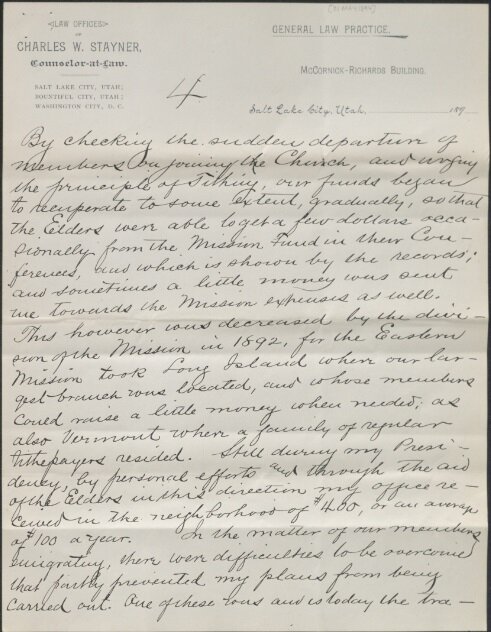 [31 MAY 1894]
LAW OFFICES
OF
CHARLES W. STAYNER,
Counselor-at-Law.
SALT LAKE CITY, UTAH;
BOUNTIFUL CITY, UTAH;
WASHINGTON CITY, D. C.
GENERAL LAW PRACTICE.
MCCORNICK-RICHARDS BUILDING.
4
Salt Lake City, Utah, 189
By checking the sudden departure of
members on joining the Church, and urging
the principle of Tithing, our funds began
to recuperate to some extent, gradually, so that
the Elders were able to get a few dollars occa-
sionally from the Mission Fund in their Con-
ferences, and which is shown by the records;
and sometimes a little money was sent
me towards the Mission expenses as well.
This however was decreased by the divi-
sion of the Mission in 1892, for the Eastern
Mission took Long Island where our lar-
gest branch was located, and whose members
could raise a little money when needed; as
also Vermont where a family of regular
tithepayers resided. Still during my Presi-
dency, by personal efforts and through the aid
of the Elders in this direction my office re-
ceived in the neighborhood of $400, or an average
of $100 a year. In the matter of our members
emigrating, there were difficulties to be overcome
that partly prevented my plans from being
carried out. One of these was and is today the tra-